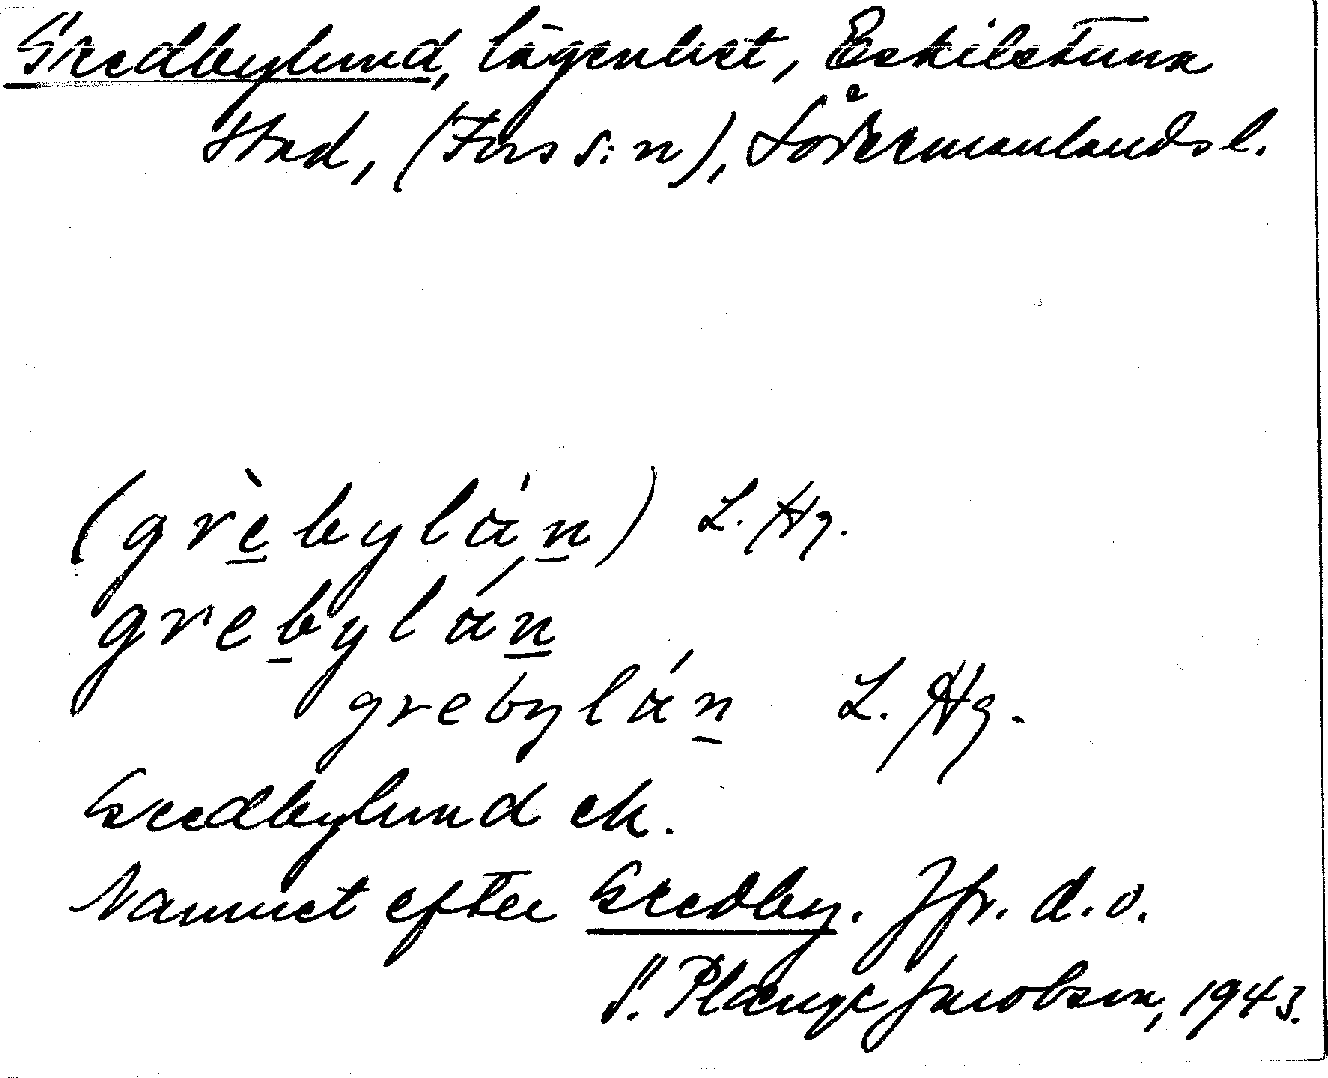 Gredbylund, lägenhet, Eskilstuna
stad, (Fors s:n), Södermanlands l.
(grèbylán) L. Hg.
grebylán
grebylán L. Hg.
Gredbylund ek.
Namnet efter Gredby. Jfr. d.o.
S. Plænge Jacobson, 1943.